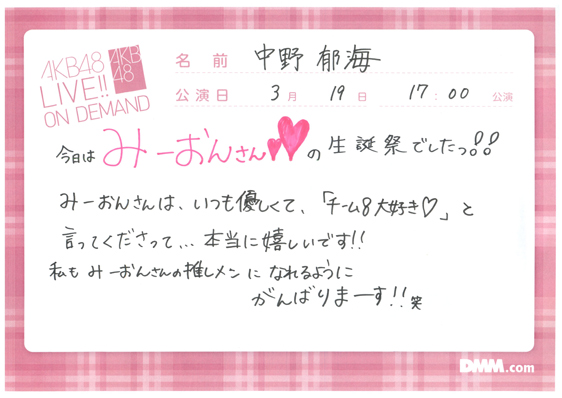 AKB48
LIVE!!
ON DEMAND
AKB
48
名前 中野 郁海
公演日 3月 19日 17:00 公演
今日は みーおんさん の 生誕祭でしたっ!!
みーおんさんは、いつも優しくて、「チーム8大好き♡」と
言ってくださって...本当に嬉しいです!!
私も みーおんさんの推しメンに なれるように
がんばりまーす!! 笑
DMM.com